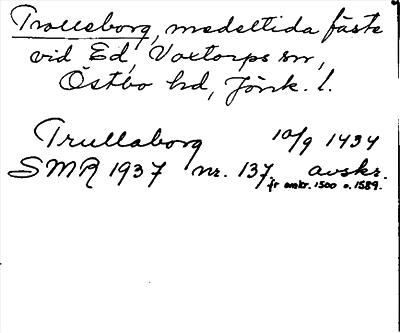 Trolleborg, medeltida fäste
vid Ed, Voxtorps sn,
Östbo hd, Jönk. l.
Trullaborg 10/9 1434
SMR 1937 nr. 137, avskr.
fr avskr. 1500 o. 1589.